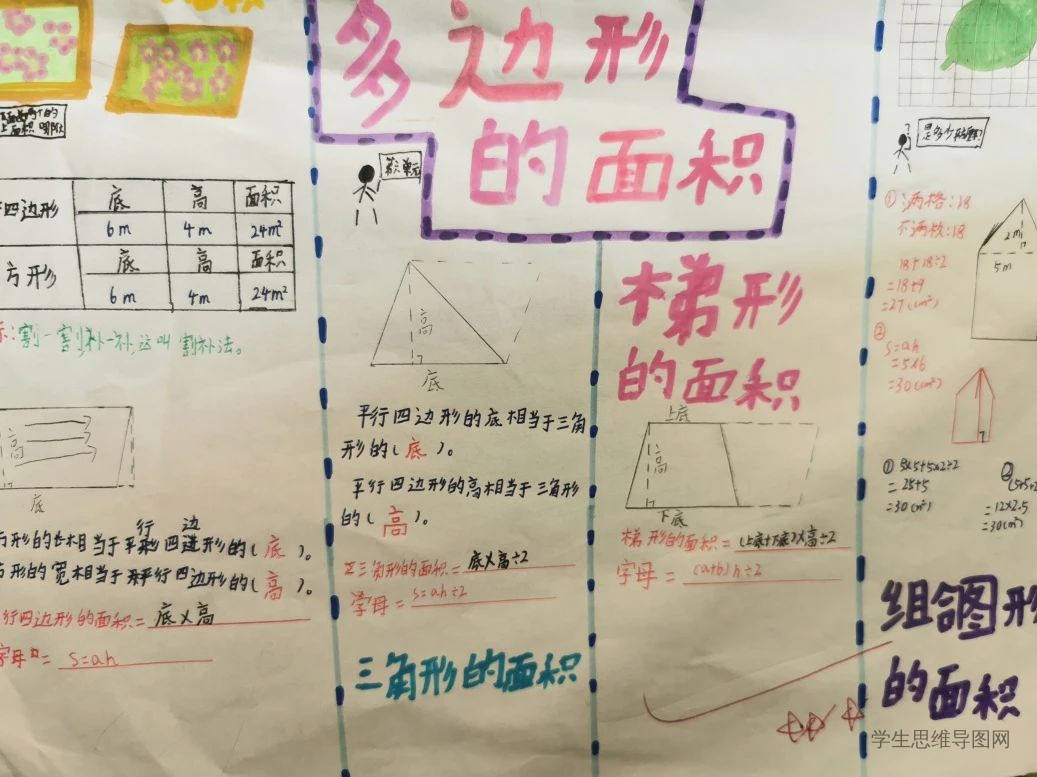 多边形
的面积
第六单元
四边形
底 高 面积
6m 4m 24m²
方形
底 高 面积
6m 4m 24m²
:割一割,补一补,这叫割补法。
高
底
行 边
形的长相当于平形四边形的(底)。
形的宽相当于平行四边形的(高)。
行四边形的面积=底×高
字母=S=ah
高
底
平行四边形的底相当于三角
形的(底)。
平行四边形的高相当于三角形
的(高)。
三角形的面积=底×高÷2
字母=S=ah÷2
三角形的面积
梯形
的面积
上底
高
下底
梯形的面积=(上底+下底)×高÷2
字母=(a+b)h÷2
①满格:18
不满格:18
18+18÷2
=18+9
=27(cm²)
②
S=ah
=5×6
=30(cm²)
2m
5m
①5×5+5×2÷2
=25+5
=30(cm²)
②
=12×2.5
=30(cm²)
组合图形
的面积
学生思维导图网